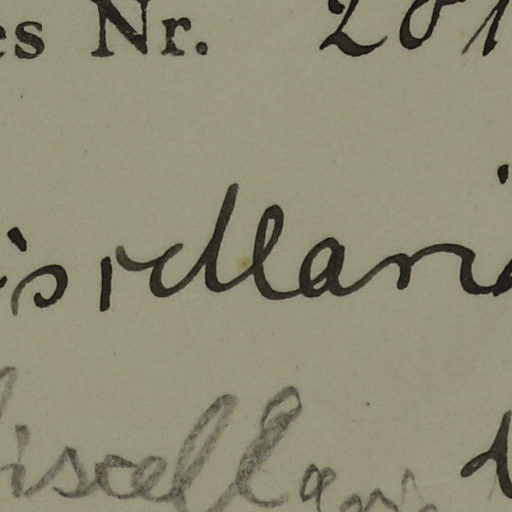 es Nr. 201
iscellania
iscellani